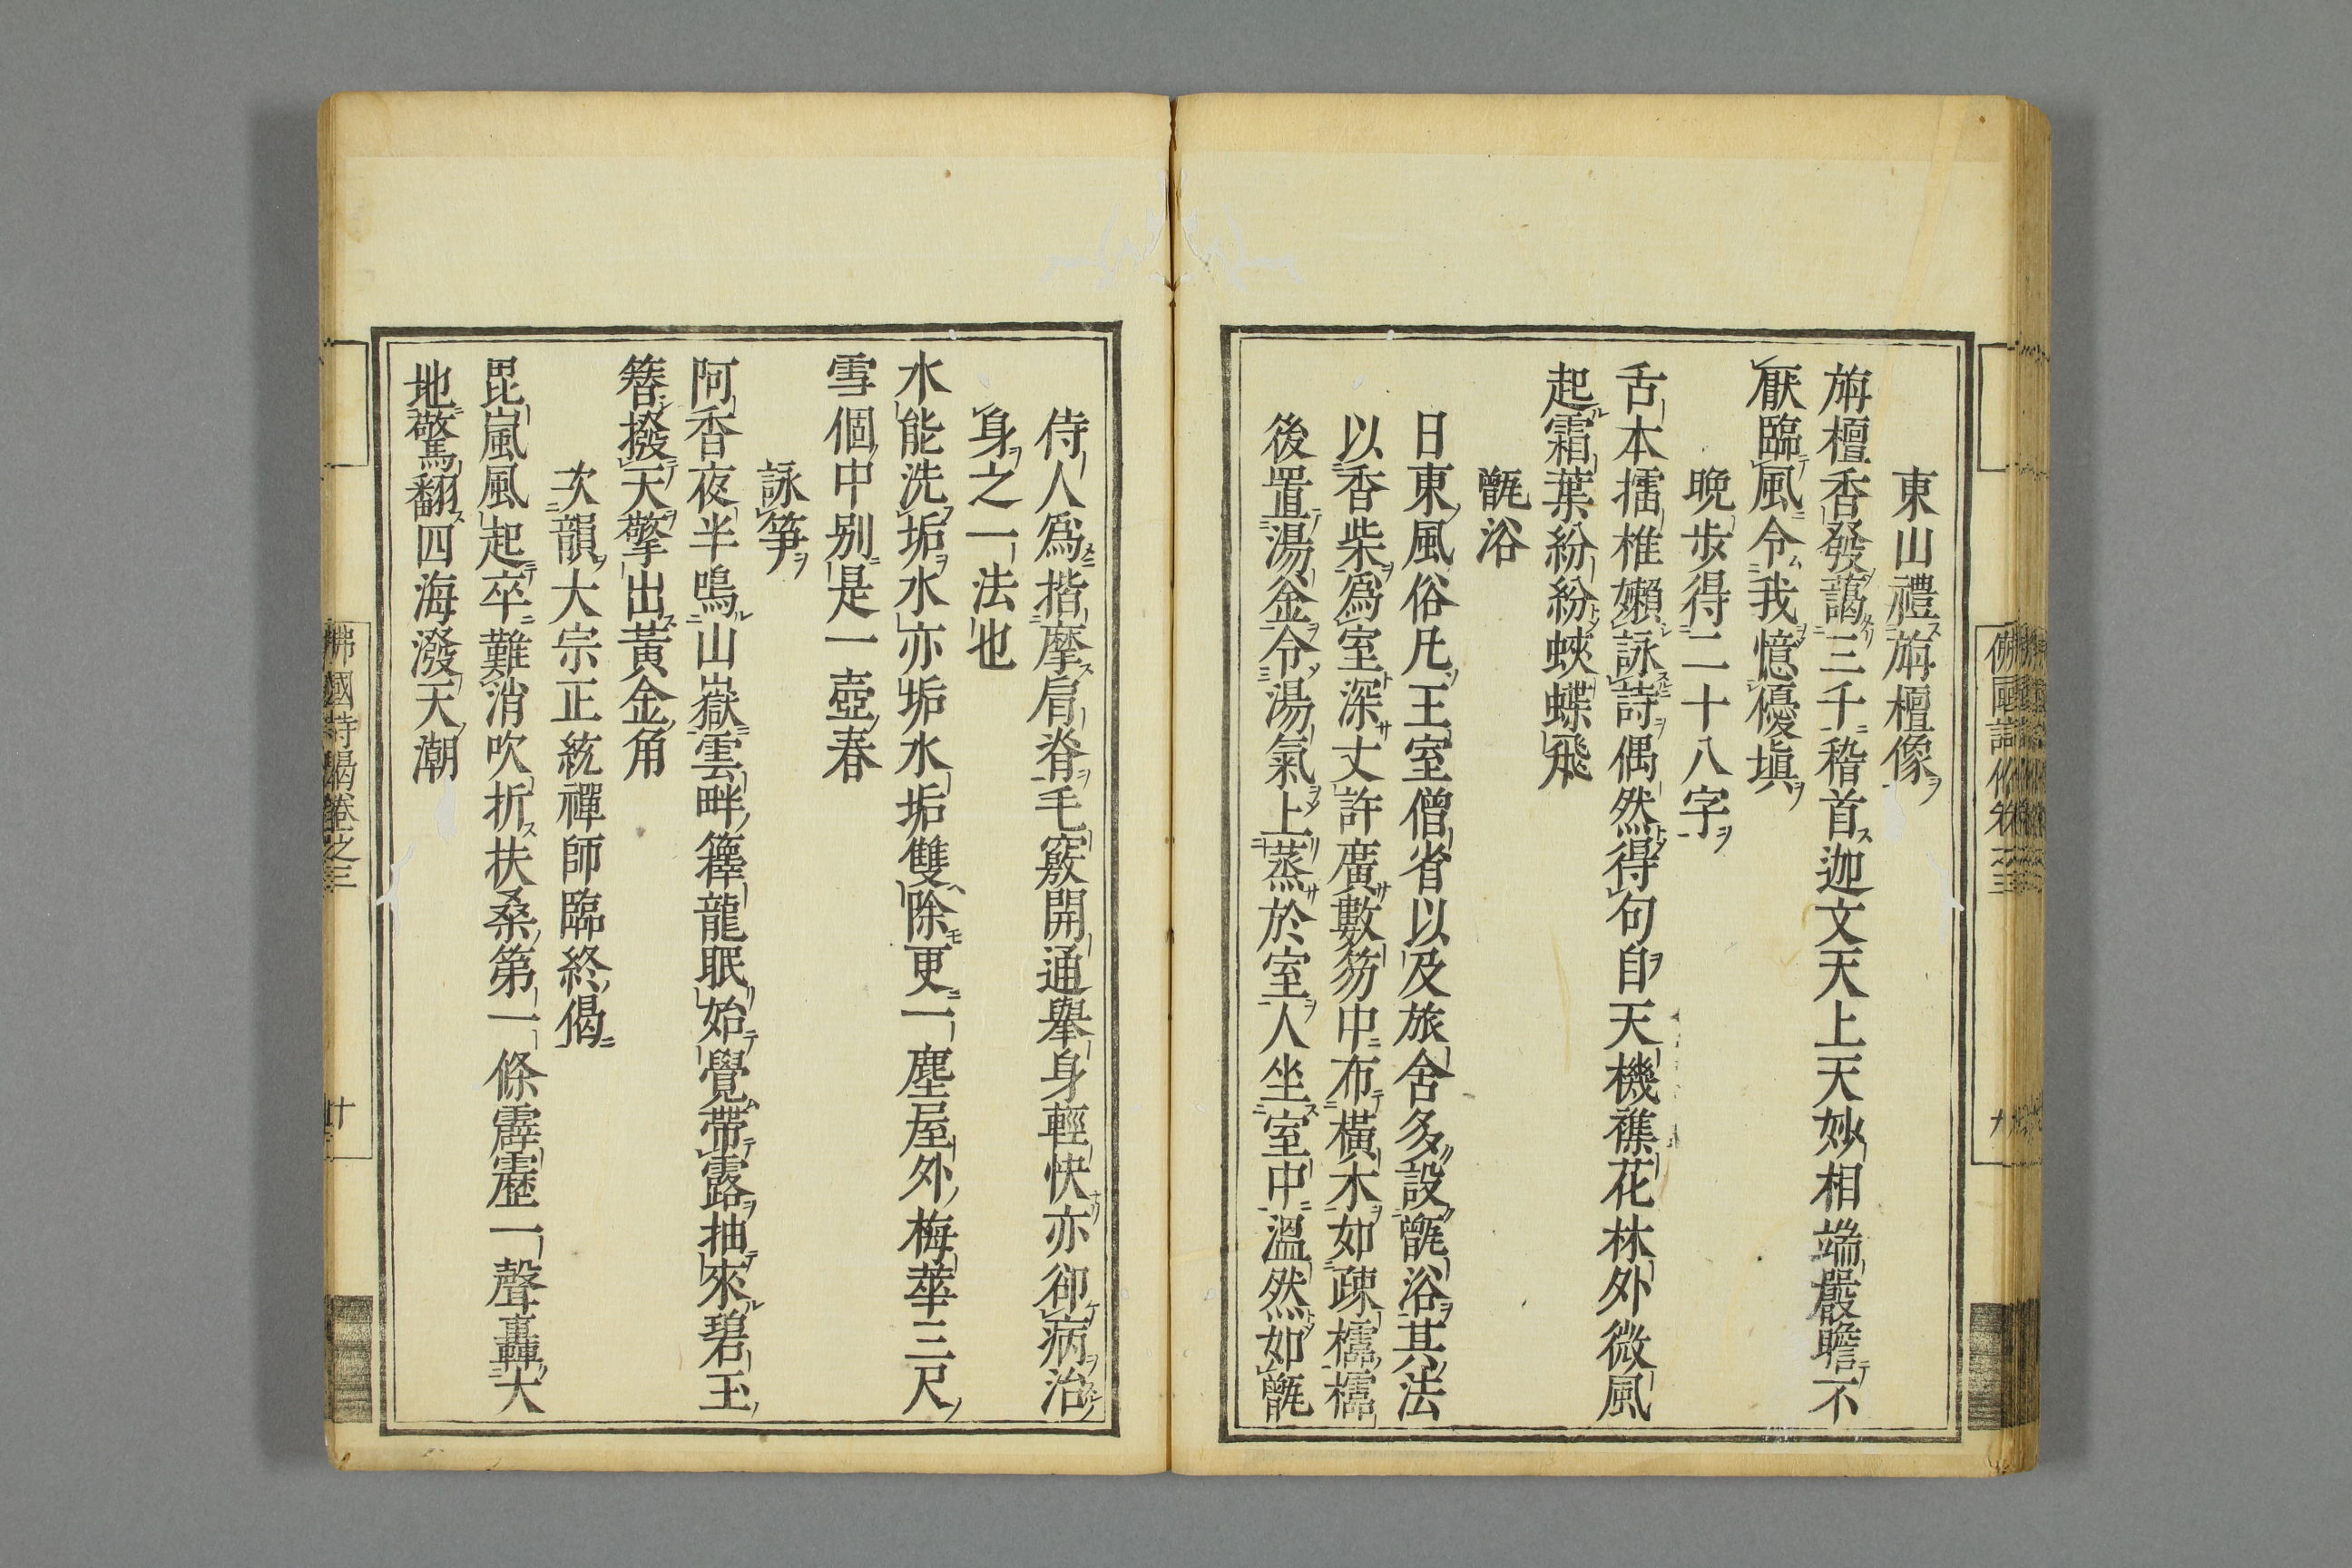 東山禮旃檀像
旃檀香發藹三千稽首迦文天上天妙相端嚴瞻不
厭臨風令我憶優塡
晩歩得二十八字
舌本擂椎嬾詠詩偶然得句自天機襍花林外微風
起霜葉紛紛蛺蝶飛
甑浴
日東風俗凡王室僧省以及旅舍多設甑浴其法
以香柴爲室深丈許廣數笏中布橫木如疎櫺櫺
後置湯釜令湯氣上蒸於室人坐室中溫然如甑
侍人爲揩摩肩脊毛竅開通擧身輕快亦卻病治
身之一法也
水能洗垢水亦垢水垢雙除更一塵屋外梅華三尺
雪個中別是一壺春
詠筝
阿香夜半鳴山嶽雲畔籜龍眠始覺帶露抽來碧玉
簪撥天擎出黃金角
次韻大宗正統禪師臨終偈
毘嵐風起卒難消吹折扶桑第一條霹靂一聲轟大
地驚翻四海潑天潮
佛國詩偈卷之三
九
佛國詩偈卷之三
十